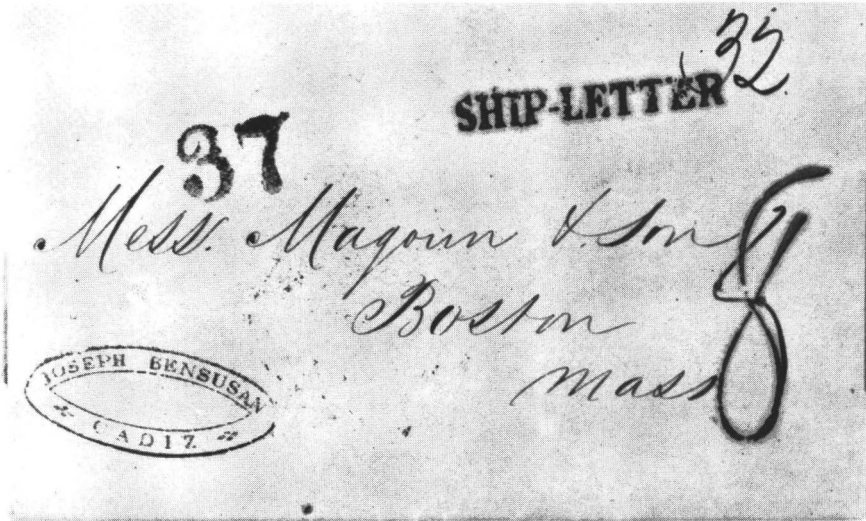 32
SHIP-LETTER
37
Mess. Magoun & Son
Boston
Mass
8
JOSEPH BENSUSAN
CADIZ